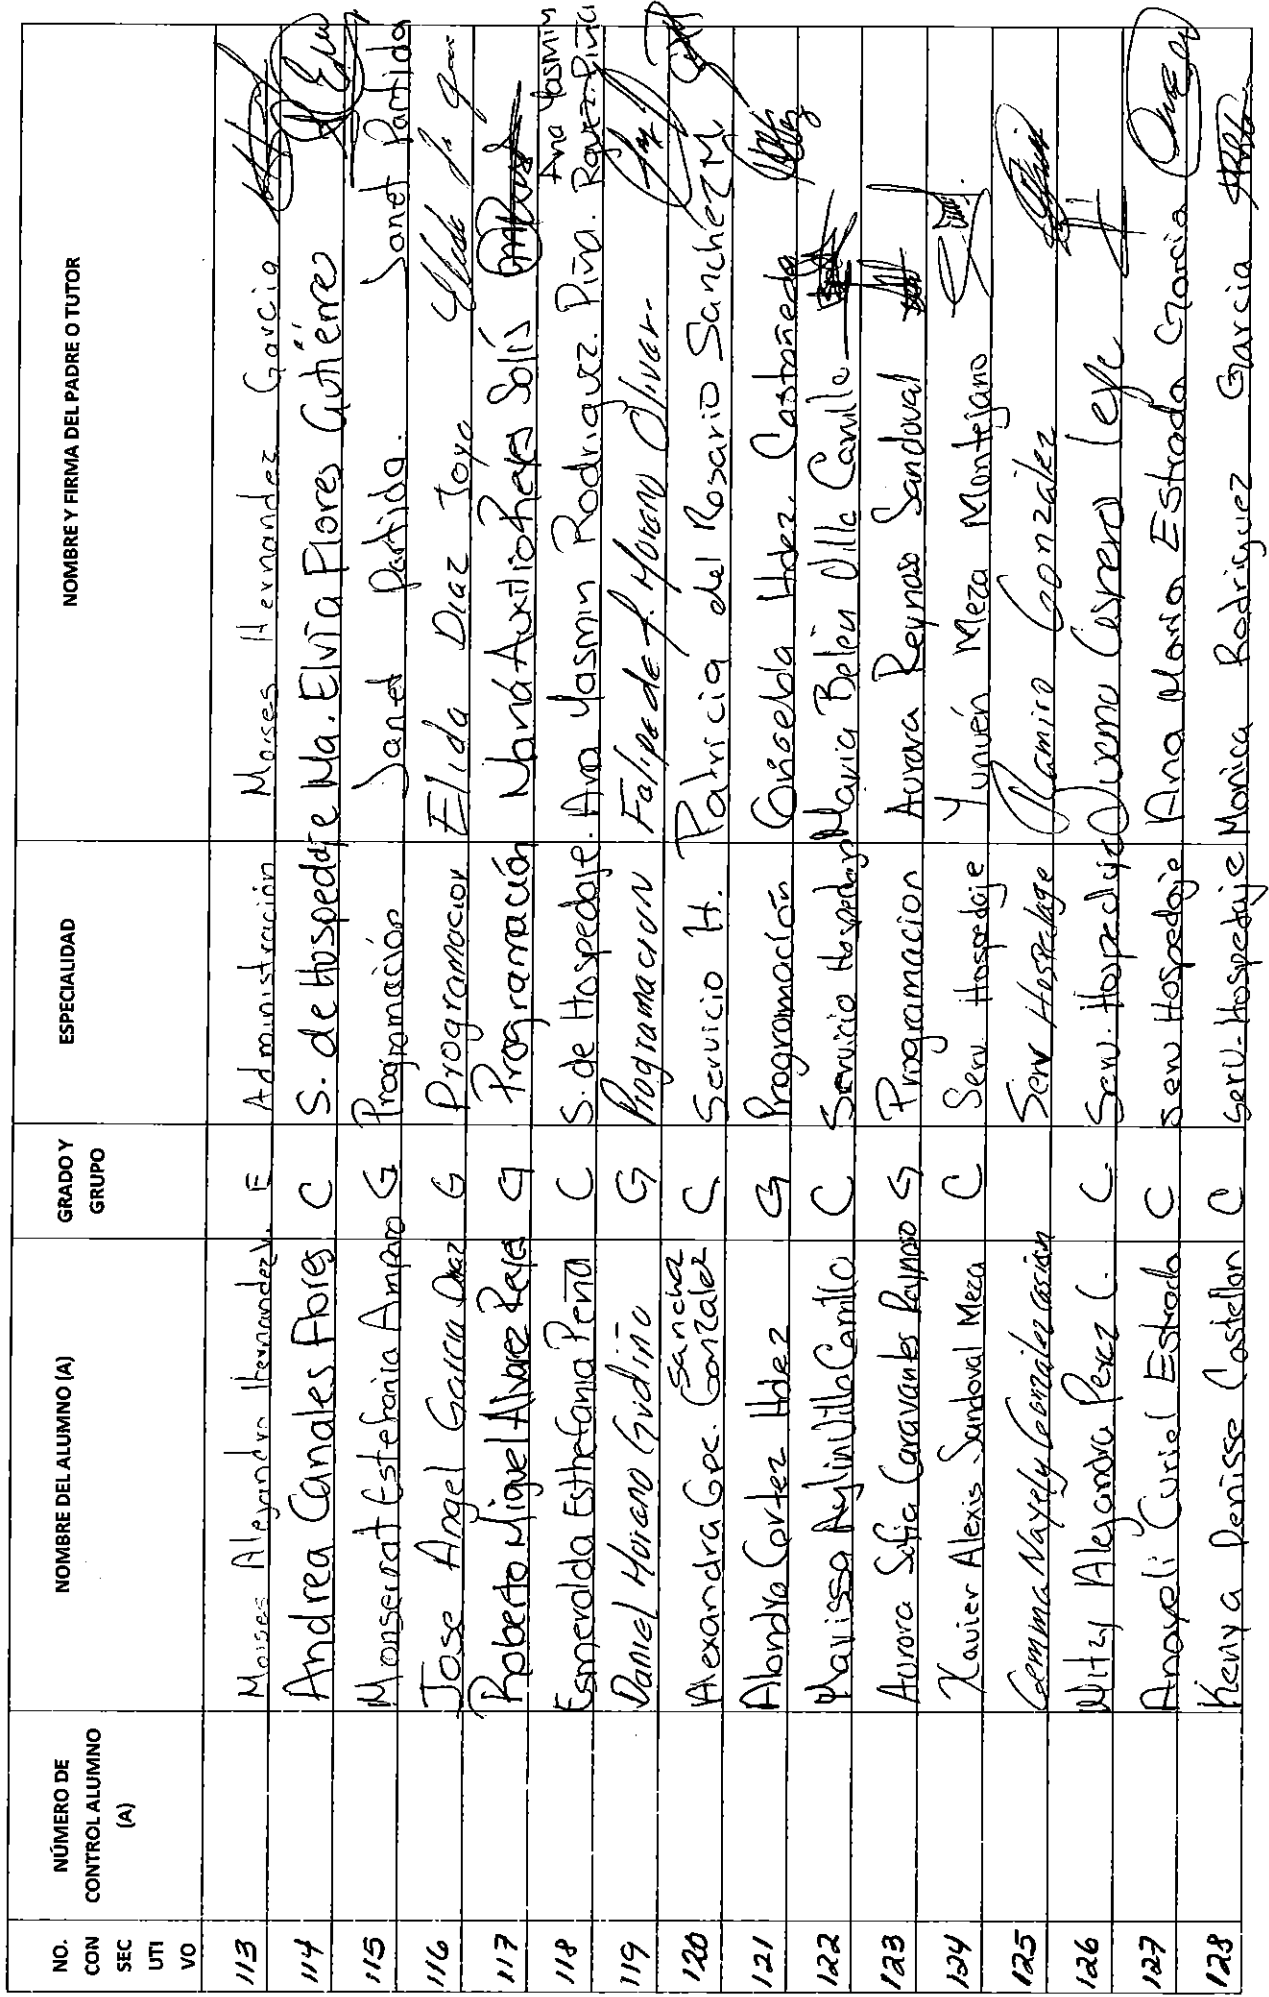 NO. CON SEC UTI VO | NÚMERO DE CONTROL ALUMNO (A) | NOMBRE DEL ALUMNO (A) | GRADO Y GRUPO | ESPECIALIDAD | NOMBRE Y FIRMA DEL PADRE O TUTOR
113 Moises Alejandro Hernandez V. E Administración Moises Hernandez Garcia
114 Andrea Canales Flores C S. de hospedaje Ma. Elvia Flores Gutiérrez
115 Monserrat Estefania Amparo G Programación Janet Partida. Janet Partida
116 Jose Angel Garcia Diaz G Programacion Elida Diaz Joya
117 Roberto Miguel Alvarez Reyes G Programación María Auxilio Reyes Solís
118 Esmeralda Esthefania Peña C S. de Hospedaje. Ana Yasmin Rodriguez. Piña. Ana Yasmin Rodriguez Piña
119 Daniel Moreno Gudiño G Programacion Felipe de J. Moreno Olivar.
120 Alexandra Gpe. Sanchez Gonzalez C Servicio H. Patricia del Rosario Sanchez M.
121 Alondra Cortez Hdez G Programación Griselda Hdez. Castañeda
122 Marissa Aylin Villa Carrillo C Servicio Hospedaje Maria Belén Villa Carrillo
123 Aurora Sofia Caravantes Reynoso G Programacion Aurora Reynoso Sandoval
124 Xavier Alexis Sandoval Meza C Serv. Hospedaje Yunuén Meza Montejano
125 Gemma Nayely Gonzalez Casian Serv Hospedage Ramiro Gonzalez
126 Mitzy Alejandra Perez C. C Serv. Hospedaje
127 Anayeli Curiel Estrada C Serv Hospedaje Ana Maria Estrada Garcia
128 Kenya Denisse Castellon C Serv. Hospedaje Monica Rodriguez Garcia